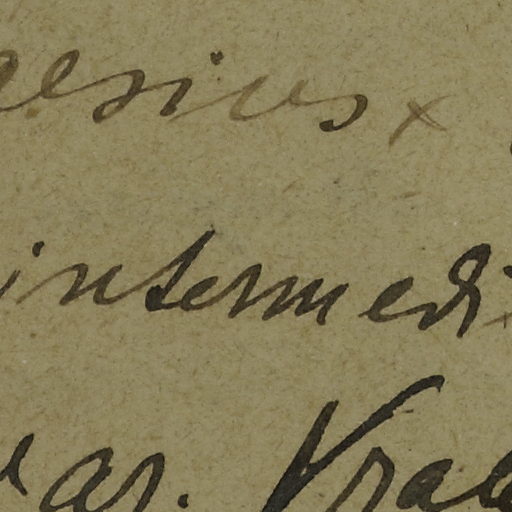 aesius x
intermedi
var. Vra